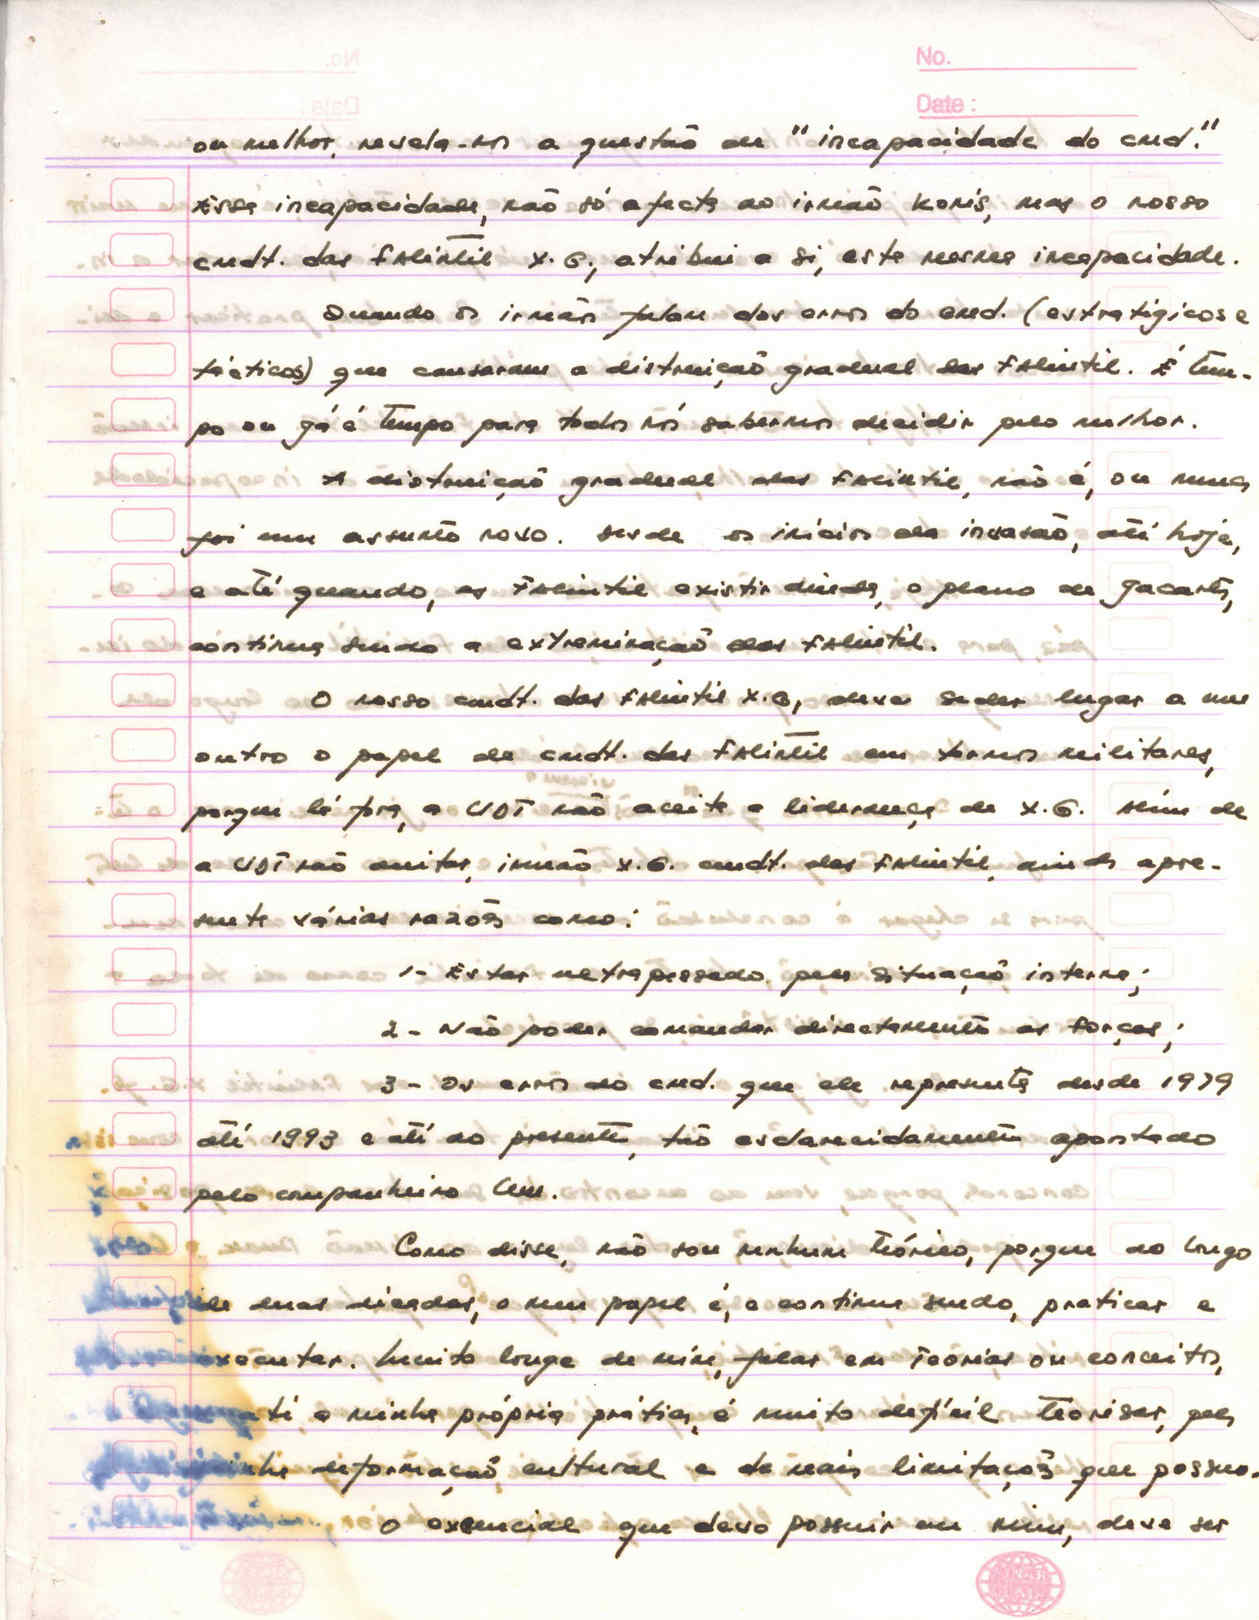 No.
Date :
ou melhor, revela-nos a questão em "incapacidade do cmd."
Essa incapacidade, não só afecta ao irmão Konis, mas o nosso
cmdt. das Falintil X.G., atribui a si, esta mesma incapacidade.
Quando os irmãos falam dos erros do cmd. (estratigicos e
tácticos) que causaram a distruição gradual das Falintil. É tem-
po ou já é tempo para todos nós sabermos decidir pelo melhor.
A distruição gradual das Falintil, não é, ou nunca
foi um assunto novo. Desde os inícios da invasão, até hoje,
e até quando, as Falintil existir ainda, o plano de Jacarta,
continua sendo a extreminação das Falintil.
O nosso cmdt. das Falintil X.G, deve seder lugar a um
outro o papel de cmdt. das Falintil em termos militares,
porque lá fora, a UDT não aceita a liderança de X.G. Além de
a UDT não aceitar, irmão X.G. cmdt. das Falintil, ainda apre-
senta várias razões como:
1- Estar ultrapassado pela situação interna;
2- Não poder comandar directamente as forças;
3- Os erros do cmd. que ele representa desde 1979
até 1993 e até ao presente, tão esclarecidamente apontado
pelo companheiro
Como disse, não sou nenhum teórico, porque ao longo
de duas décadas, o meu papel é, e continua sendo, praticar e
executar. Muito longe de mim, falar em teorias ou conceitos,
até a minha própria prática, é muito defícil teorisar, pela
minha deformação cultural e de mais limitações que possuo.
O exsencial que devo possuir em mim, deve ser